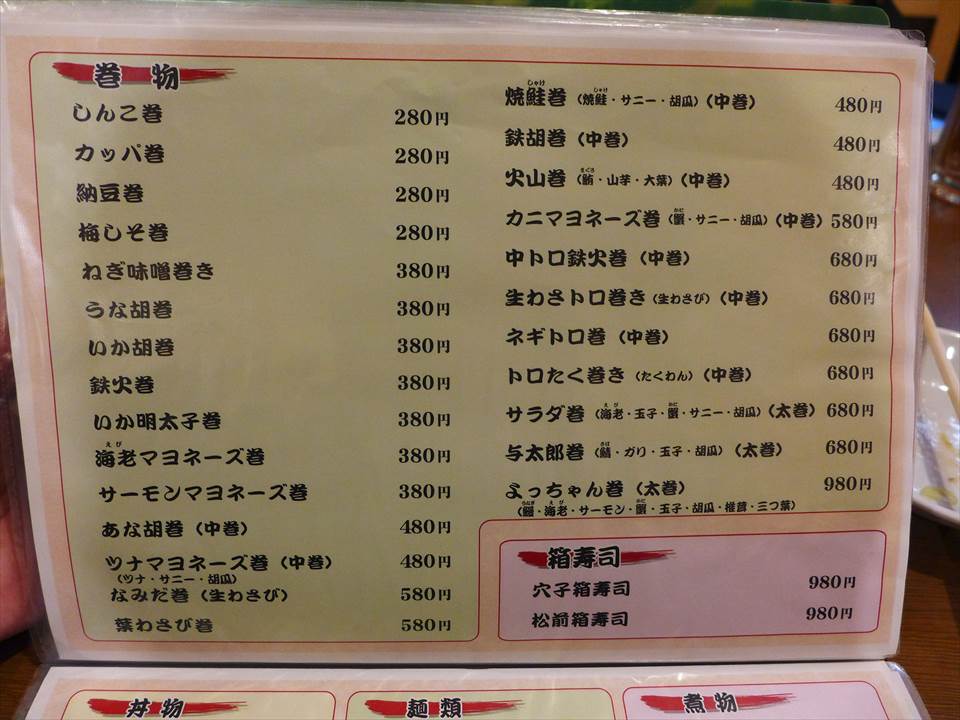 巻物
しんこ巻 280円
カッパ巻 280円
納豆巻 280円
梅しそ巻 280円
ねぎ味噌巻き 380円
うな胡巻 380円
いか胡巻 380円
鉄火巻 380円
いか明太子巻 380円
えび
海老マヨネーズ巻 380円
サーモンマヨネーズ巻 380円
あな胡巻(中巻) 480円
ツナマヨネーズ巻(中巻) 480円
(ツナ・サニー・胡瓜)
なみだ巻(生わさび) 580円
葉わさび巻 580円
しゃけ しゃけ
焼鮭巻(焼鮭・サニー・胡瓜)(中巻) 480円
鉄胡巻(中巻) 480円
まぐろ
火山巻(鮪・山芋・大葉)(中巻) 480円
かに
カニマヨネーズ巻(蟹・サニー・胡瓜)(中巻) 580円
中トロ鉄火巻(中巻) 680円
生わさトロ巻き(生わさび)(中巻) 680円
ネギトロ巻(中巻) 680円
トロたく巻き(たくわん)(中巻) 680円
えび かに
サラダ巻(海老・玉子・蟹・サニー・胡瓜)(太巻) 680円
さけ
与太郎巻(鯖・ガリ・玉子・胡瓜)(太巻) 680円
よっちゃん巻(太巻) 980円
うなぎ えび かに
(鰻・海老・サーモン・蟹・玉子・胡瓜・椎茸・三つ葉)
箱寿司
穴子箱寿司 980円
松前箱寿司 980円
丼物
麺類
煮物